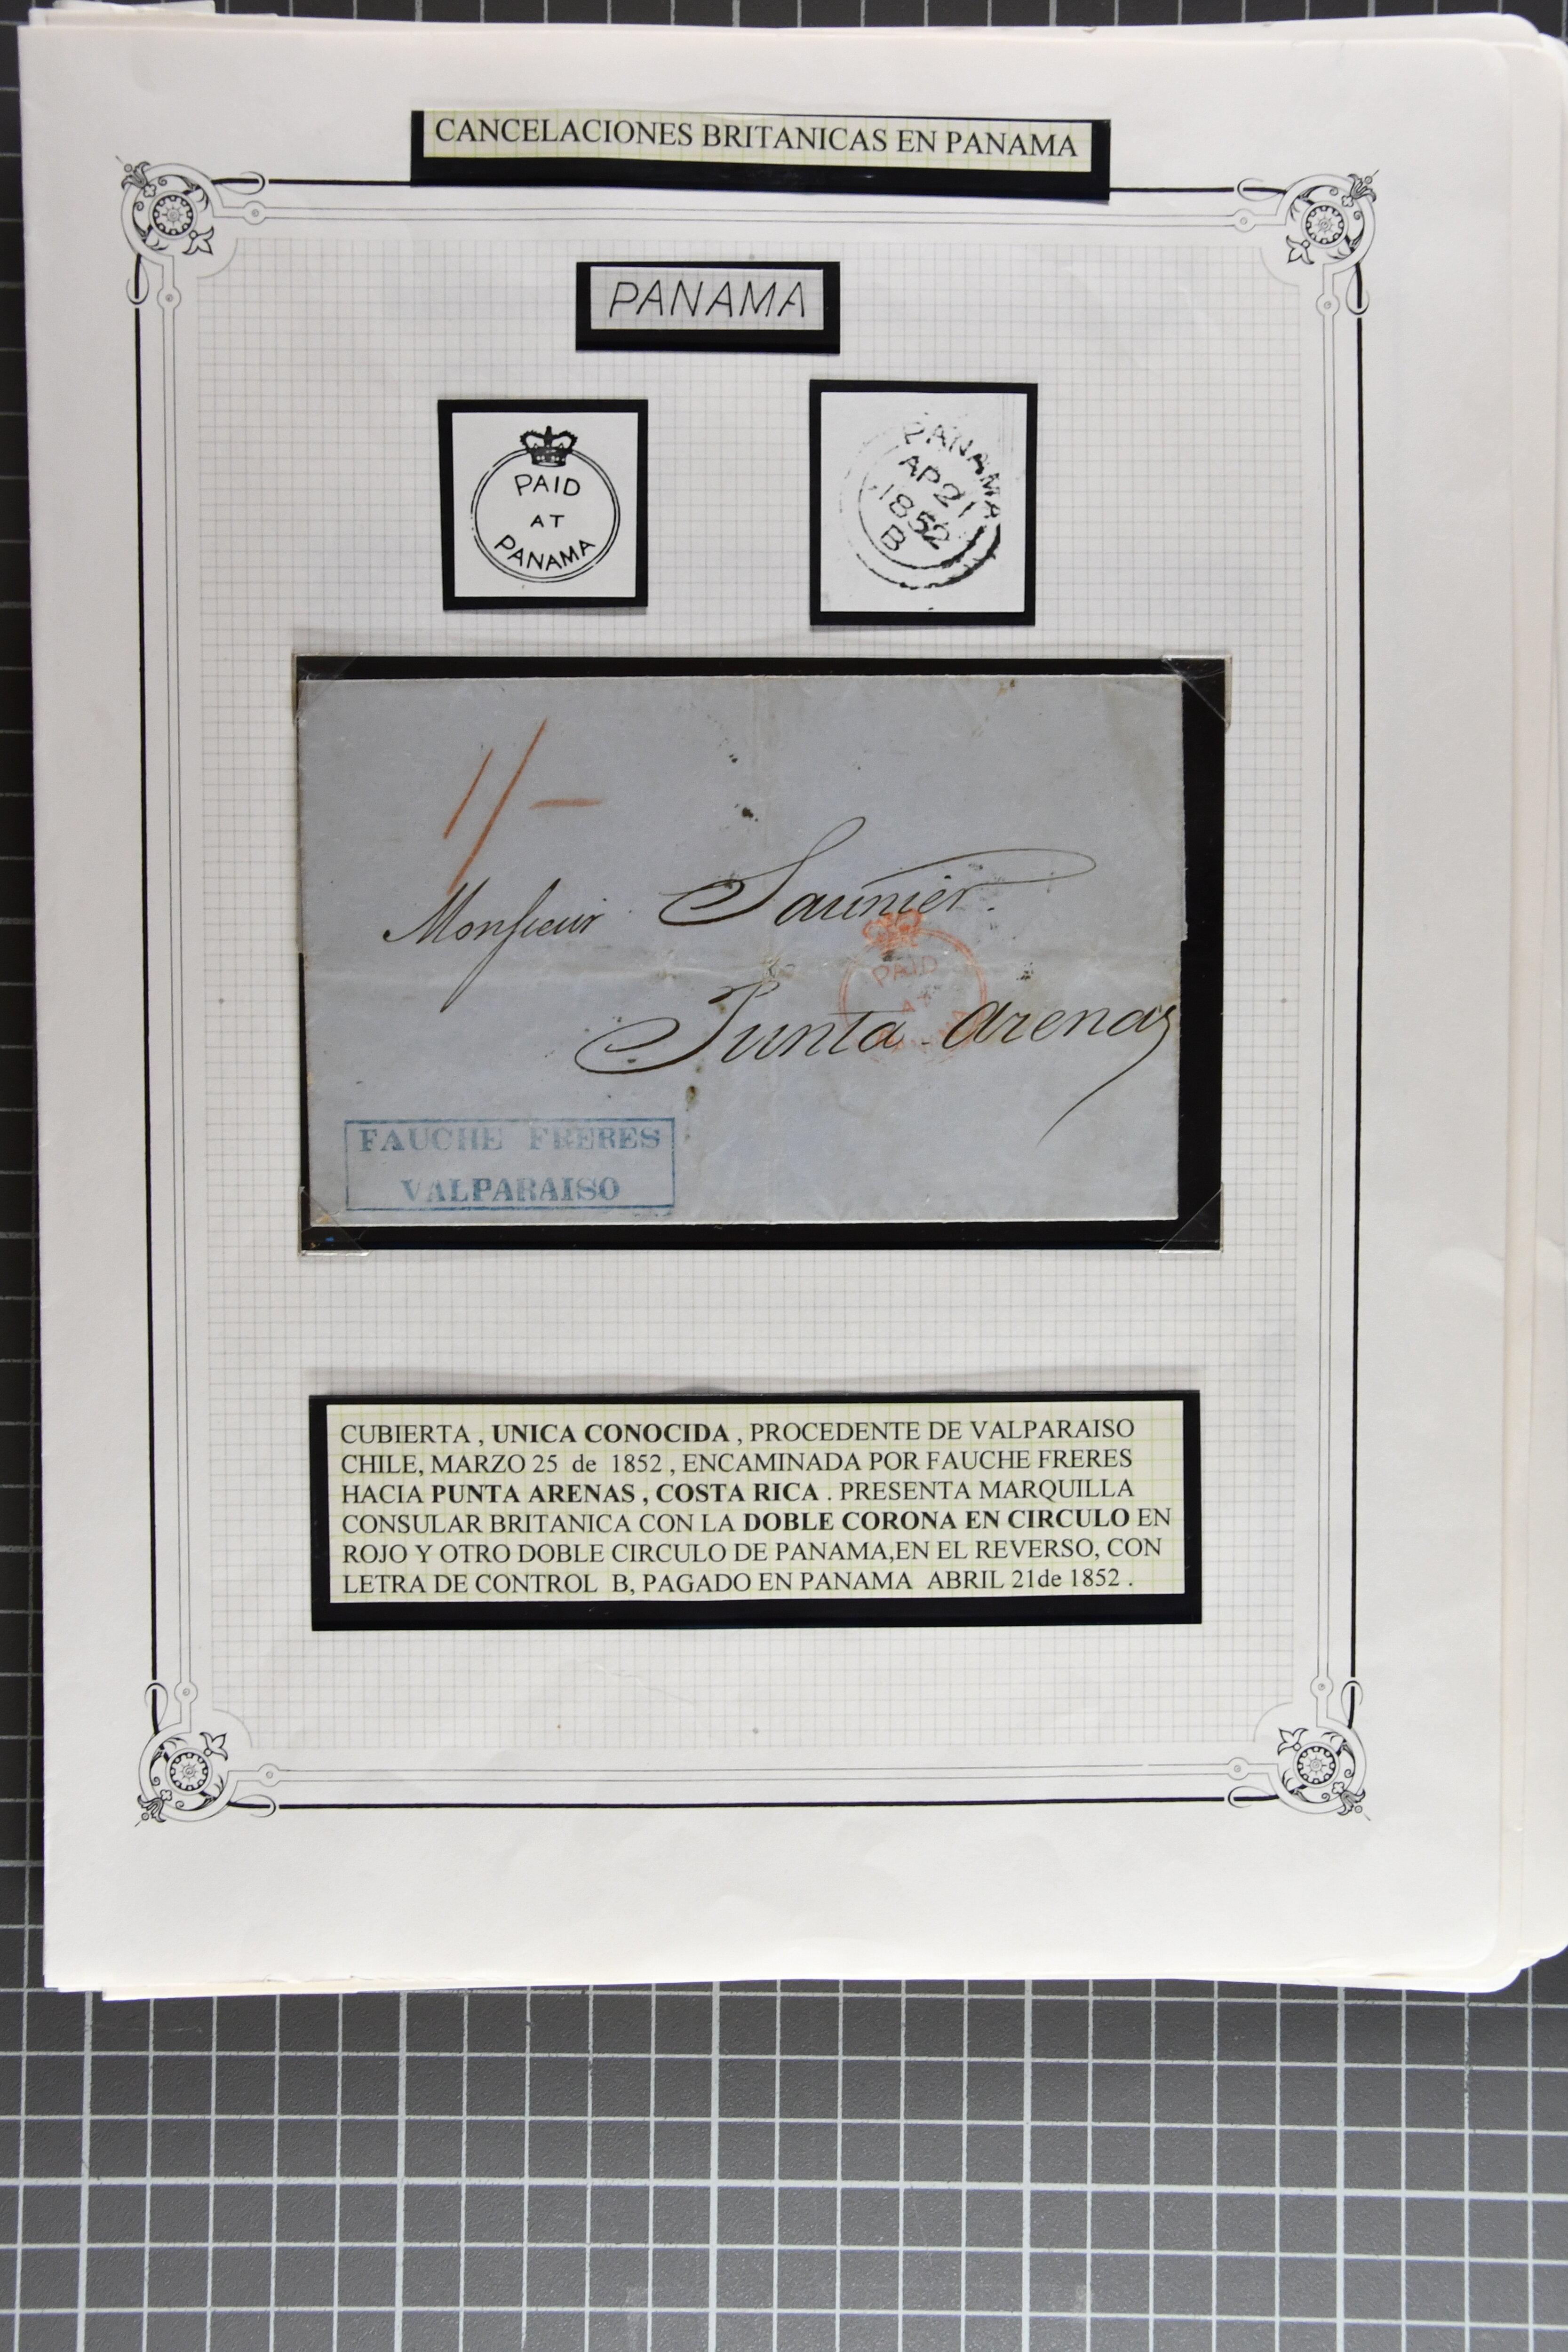 CANCELACIONES BRITANICAS EN PANAMA
PANAMA
PAID
AT
PANAMA
PANAMA
AP 21
1852
B
1/-
Monsieur Saunier.
PAID
AT
PANAMA
Punta Arenas
FAUCHE FRERES
VALPARAISO
CUBIERTA , UNICA CONOCIDA , PROCEDENTE DE VALPARAISO
CHILE, MARZO 25 de 1852 , ENCAMINADA POR FAUCHE FRERES
HACIA PUNTA ARENAS , COSTA RICA . PRESENTA MARQUILLA
CONSULAR BRITANICA CON LA DOBLE CORONA EN CIRCULO EN
ROJO Y OTRO DOBLE CIRCULO DE PANAMA,EN EL REVERSO, CON
LETRA DE CONTROL B, PAGADO EN PANAMA ABRIL 21de 1852 .